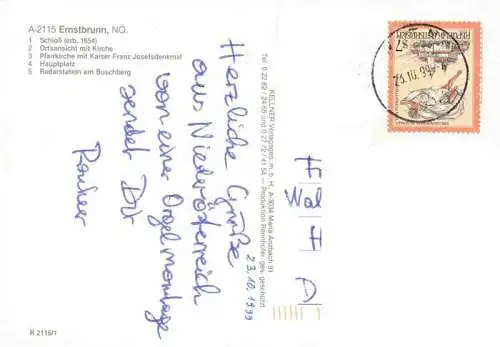 A-2115 Ernstbrunn, NÖ.
1 Schloß (erb. 1654)
2 Ortsansicht mit Kirche
3 Pfarrkirche mit Kaiser Franz Josefsdenkmal
4 Hauptplatz
5 Radarstation am Buschberg
Herzliche Grüße
23.10.1999
aus Niederösterreich
von eine Orgelmontage
sendet Dir
KELLNER Verlagsges. m. b. H., A-3034 Maria Anzbach 91
Tel. 0 22 62 / 24 65 und 0 27 72 / 41 54 — Produktion Rennhofer, ges. geschützt
F
Wal
H
D
S 7
REPUBLIK ÖSTERREICH
23.10.99
R 2115/1